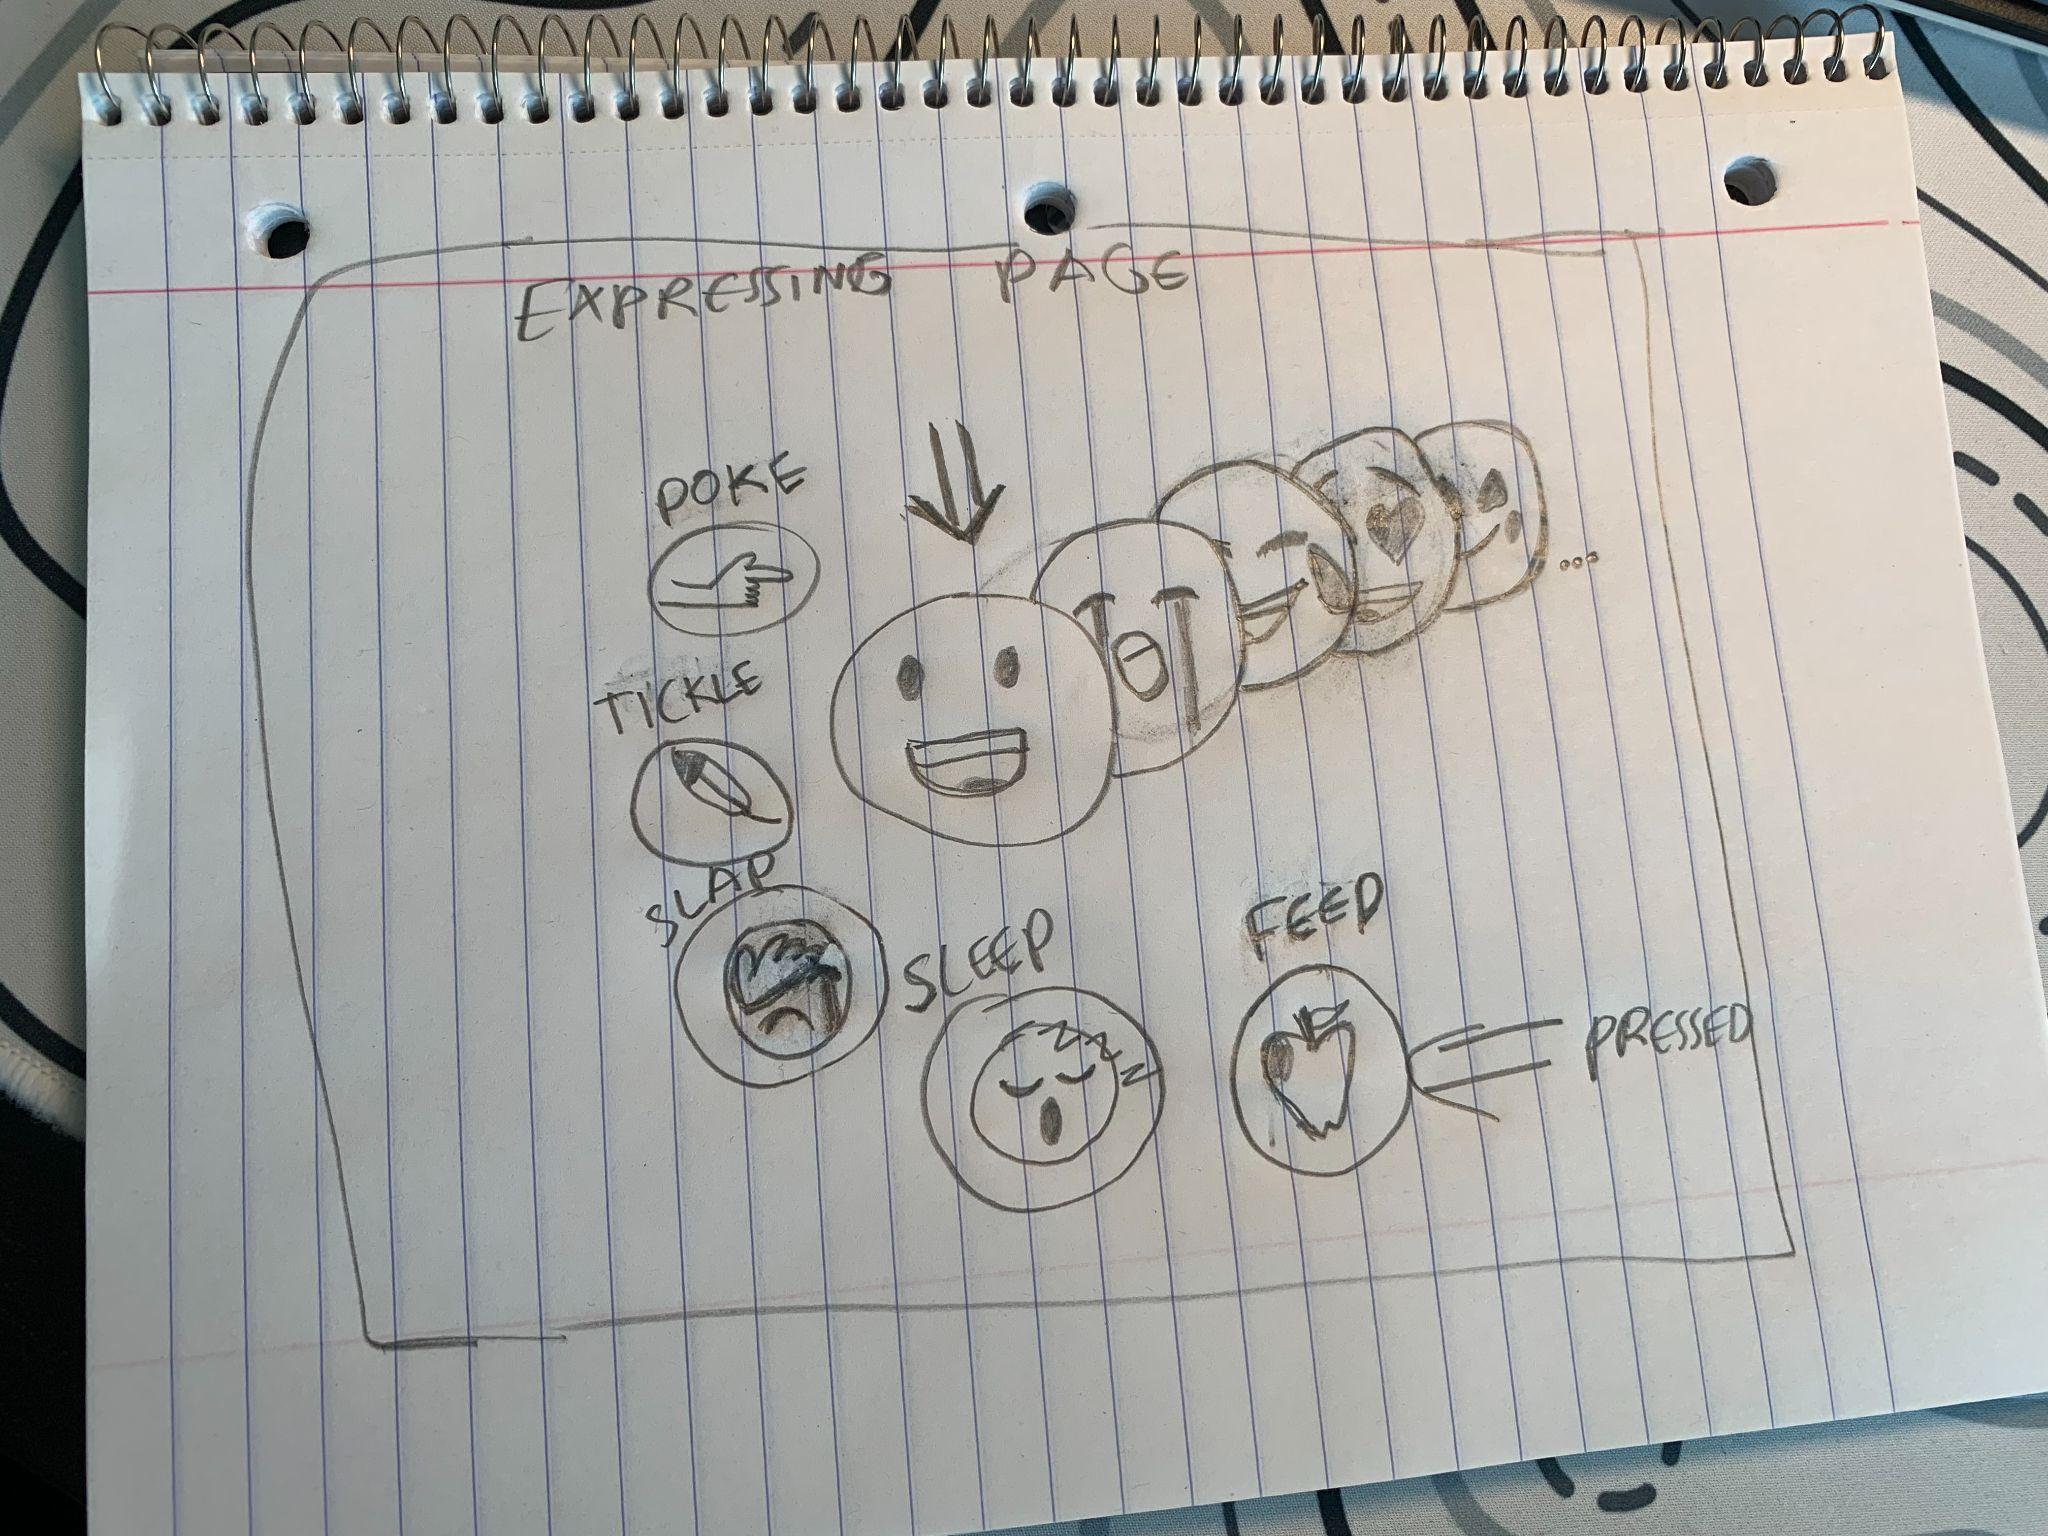 EXPRESSING PAGE
POKE
TICKLE
SLAP
SLEEP
zzzz
FEED
PRESSED
...